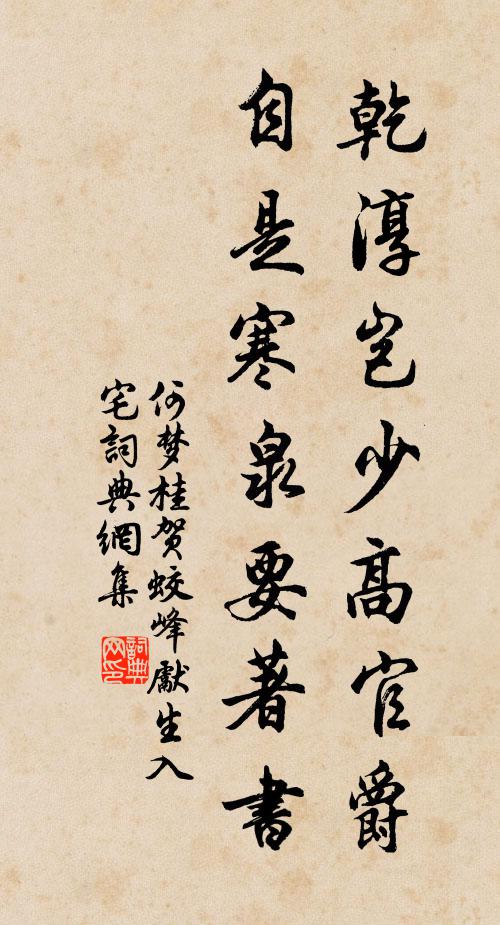 乾淳豈少高官爵
自是寒泉要著書
何梦桂贺蛟峰獻生入
宅詞典網集
詞典网印